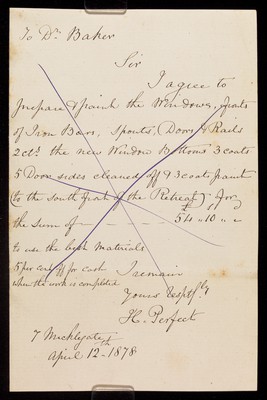 To Dr. Baker
Sir
I agree to
prepare & paint the Windows, fronts
of Iron Bars, Spouts, Doors & Rails
2 cts the new Window Bottoms 3 coats
5 Door sides cleaned off & 3 coats paint
(to the south front of the Retreat) for
the sum of - - - - - 5 4 " 10 " "
to use the best materials
5 per cent off for cash
when the work is completed
I remain
Yours resptfly
H. Perfect
7 Micklegate
April 12th 1878